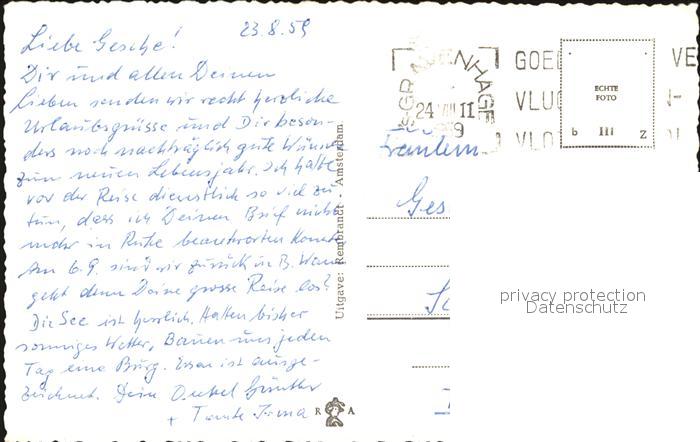 23.8.59
Liebe Gesche!
Dir und allen Deinen
Lieben senden wir recht herzliche
Urlaubsgrüsse und Dir beson-
ders noch nachträglich gute Wünsche
zum neuen Lebensjahr. Ich hatte
vor der Reise dienstlich so viel zu
tun, dass ich Deinen Brief nicht
mehr in Ruhe beantworten konnte.
Am 6.9. sind wir zurück in B. Wann
geht denn Deine grosse Reise los?
Die See ist herrlich. Hatten bisher
sonniges Wetter. Bauen uns jeden
Tag eine Burg. Essen ist ausge-
zeichnet. Dein Onkel Günther
+ Tante Irma
Uitgave: Rembrandt - Amsterdam
R A
'S-GRAVENHAGE
24 VIII 11
1959
GOE VE
VLU
VLO
ECHTE
FOTO
b III z
Fräulein
Ges
privacy protection
Datenschutz